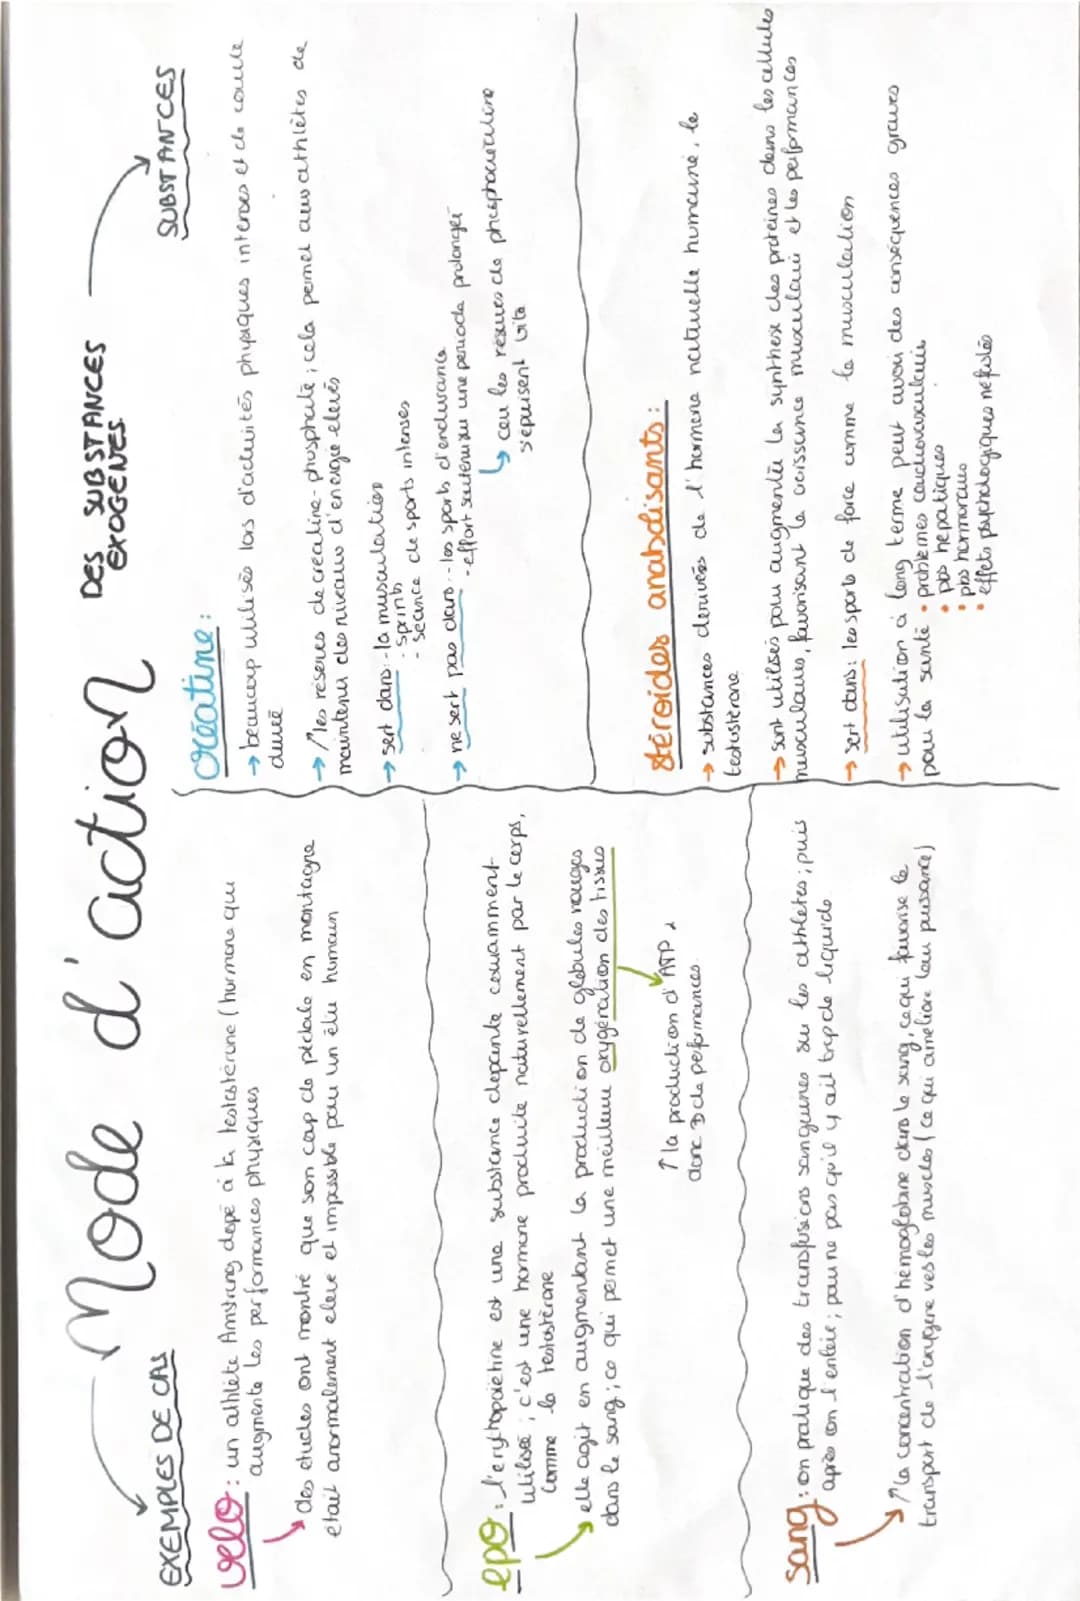 Mode d'action DES SUBSTANCES
EXOGENES
EXEMPLES DE CAS
velo : un athlète Amstrung dopé à la testostérone (hormone qui
augmente les performances physiques
des études ont montré que son cap de pédale en montagne
était anormalement eleve et impossible pour un être humain
epo : l'erythopoïétine est une substance dopante couramment
utilisée ; c'est une hormone produite naturellement par le corps,
comme la testostérone
elle agit en augmentant la production de globules rouges
dans le sang ; ce qui permet une meilleure oxygération des tissus
↑ la production d'ATP
donc de performances
sang : on pratique des transfusions sanguines sur les athlètes ; puis
après on l'enlève ; pour ne pas qu'il y ait trop de liquide
↑ la concentration d'hémoglobine dans le sang, ce qui favorise le
transport de l'oxygene vers les muscles (ce qui améliore leur puissance)
SUBSTANCES
créatine :
→ beaucoup utilisés lors d'activités physiques intenses et de courte
durée
→ ↑ les réserves de créatine-phosphate ; cela permet aux athlètes de
maintenir des niveaux d'énergie elevés
→ sert dans : - la musculation
- sprint
- séance de sports intenses
→ ne sert pas dans : - les sports d'endurance
- effort soutenu sur une periode prolonger
↳ car les réserves de phosphocréatine
s'épuisent vite
stéroides anabolisants :
→ substances derivées de l'hormone naturelle humaine, la
testostérone
→ sont utilisés pour augmenter la synthèse des proteines dans les cellules
musculaires, favorisant la croissance musculaire et les performances
→ sert dans : les sports de force comme la musculation
→ utilisation à long terme peut avoir des conséquences graves
pour la santé • problèmes cardiovasculaires
• pbs hepatiques
• pbs hormonaux
• effets psychologiques nefastes